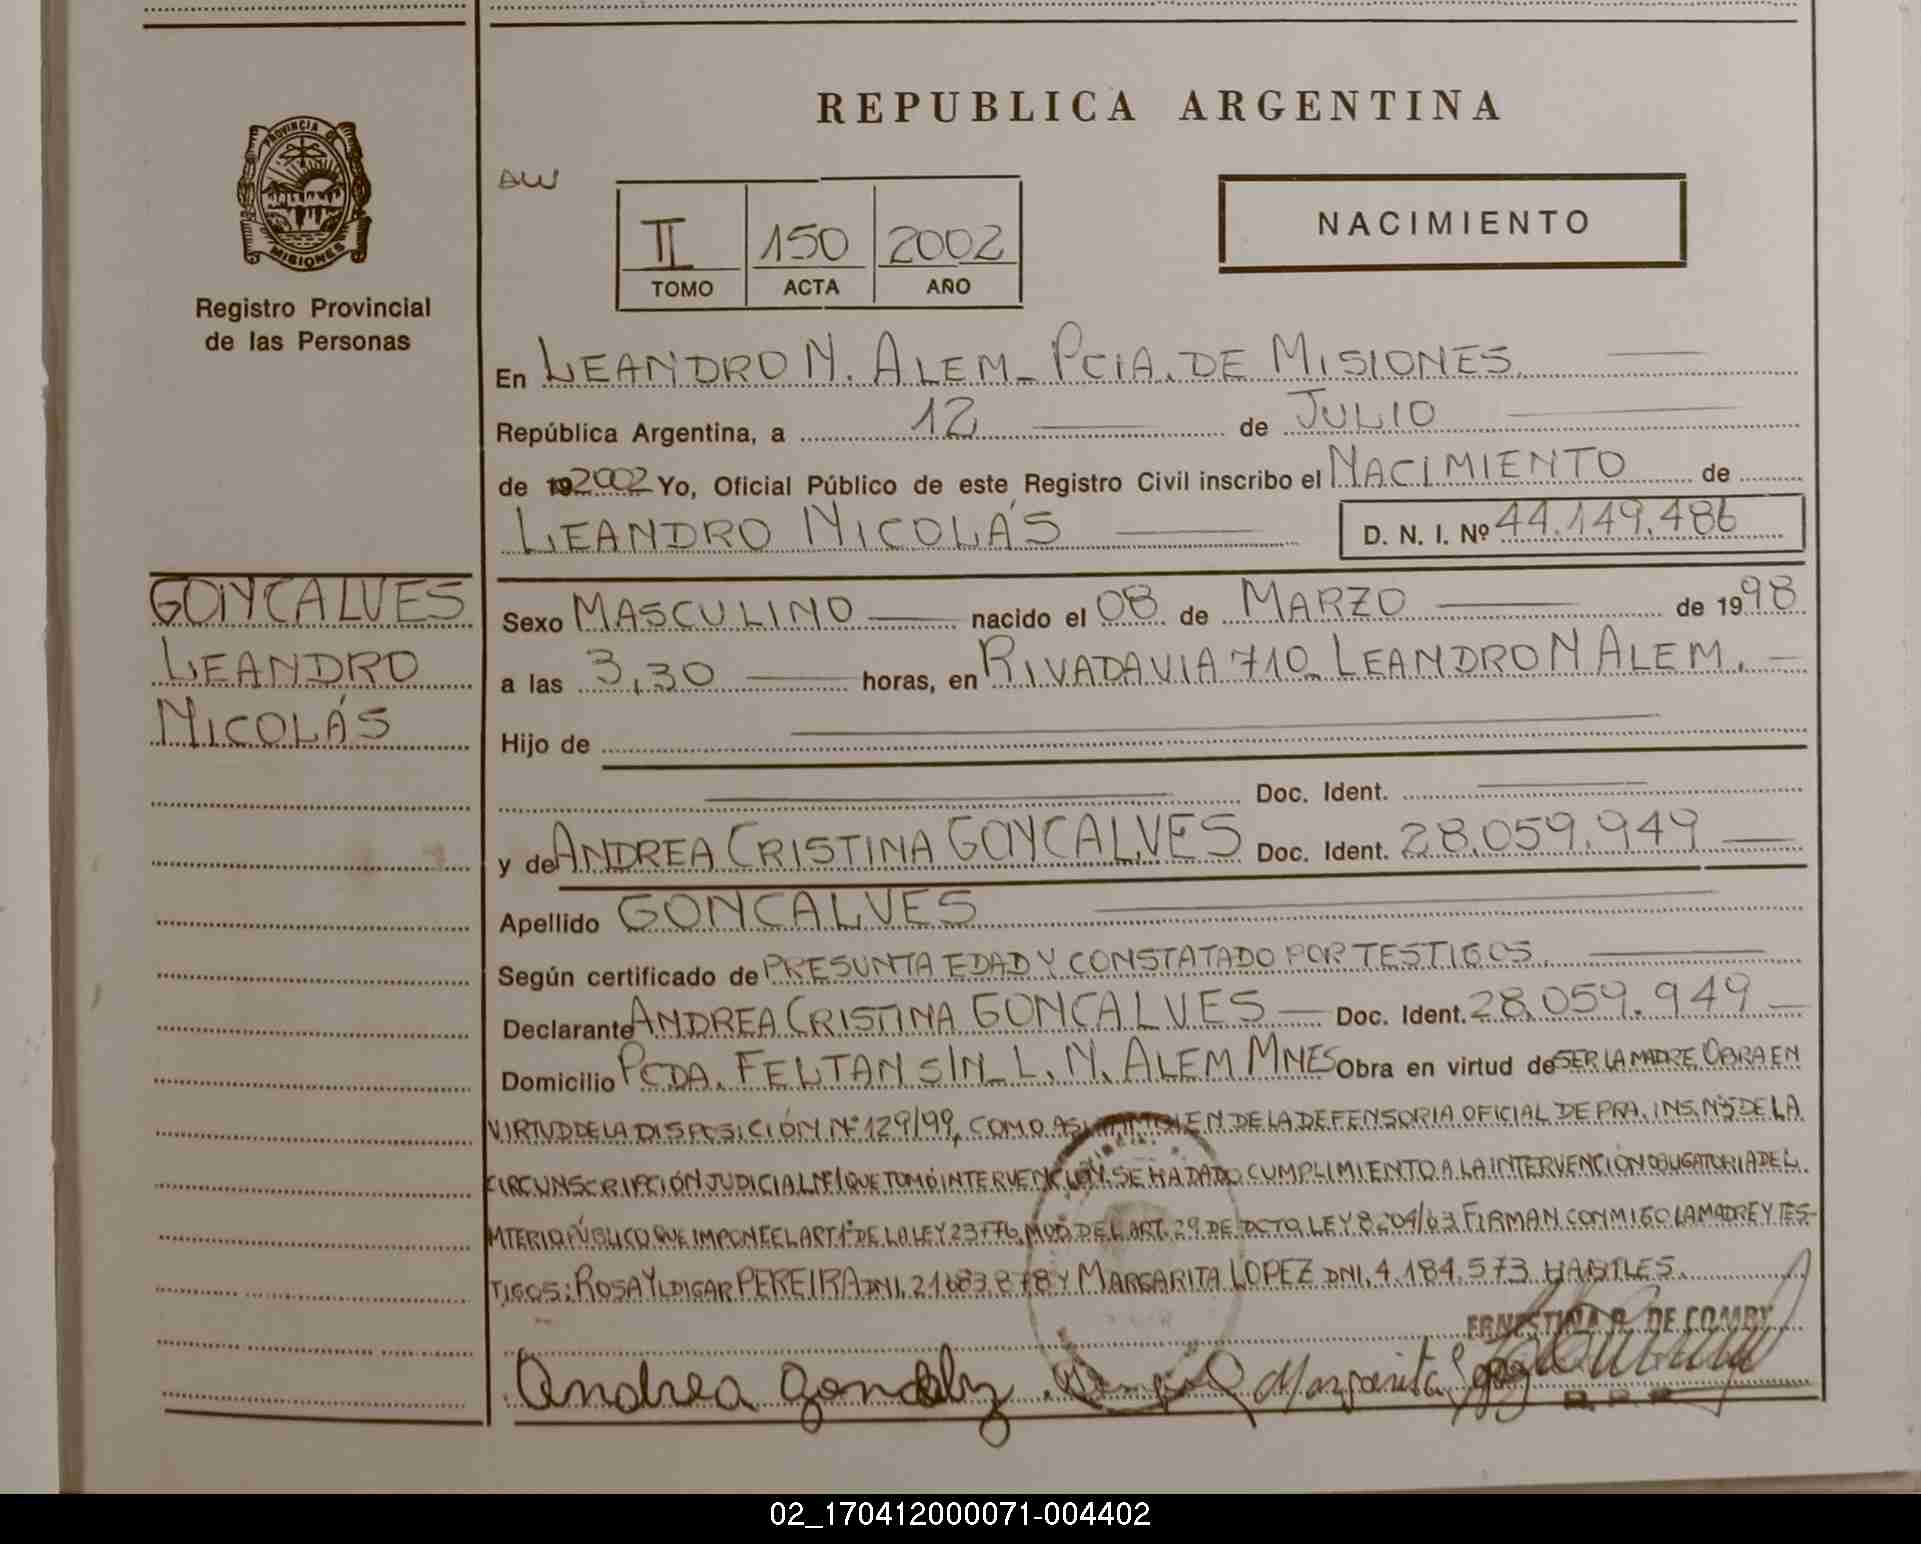 REPUBLICA ARGENTINA
PROVINCIA DE
MISIONES
Registro Provincial
de las Personas
II 150 2002
TOMO ACTA AÑO
NACIMIENTO
En LEANDRO N. ALEM - PCIA. DE MISIONES
República Argentina, a 12 de JULIO
de 192002 Yo, Oficial Público de este Registro Civil inscribo el NACIMIENTO de
LEANDRO NICOLÁS D. N. I. Nº 44.149.486
GONCALVES
LEANDRO
NICOLÁS
Sexo MASCULINO nacido el 08 de MARZO de 1998
a las 3,30 horas, en RIVADAVIA 710 - LEANDRO N ALEM.
Hijo de
Doc. Ident.
y de ANDREA CRISTINA GONCALVES Doc. Ident. 28.059.949
Apellido GONCALVES
Según certificado de PRESUNTA EDAD Y CONSTATADO POR TESTIGOS
Declarante ANDREA CRISTINA GONCALVES Doc. Ident. 28.059.949
Domicilio PCDA. FELTAN S/N - L. N. ALEM MNES Obra en virtud de SER LA MADRE, OBRA EN
VIRTUD DE LA DISPOSICIÓN Nº 129/99, COMO ASI TAMBIEN DE LA DEFENSORIA OFICIAL DE PRA. INS. Nº5 DE LA
CIRCUNSCRIPCIÓN JUDICIAL Nº1 QUE TOMÓ INTERVENCIÓN, SE HA DADO CUMPLIMIENTO A LA INTERVENCIÓN OBLIGATORIA DEL
MTERIO PÚBLICO QUE IMPONE EL ART 1º DE LA LEY 23776, MOD. DEL ART. 29 DE DCTO. LEY 8204/63. FIRMAN CONMIGO LA MADRE Y TES-
TIGOS: ROSA YLDIGAR PEREIRA DNI. 21.683.878 Y MARGARITA LOPEZ DNI. 4.184.573 HABILES.
ERNESTINA R. DE COMBY
Andrea Margarita
02_170412000071-004402